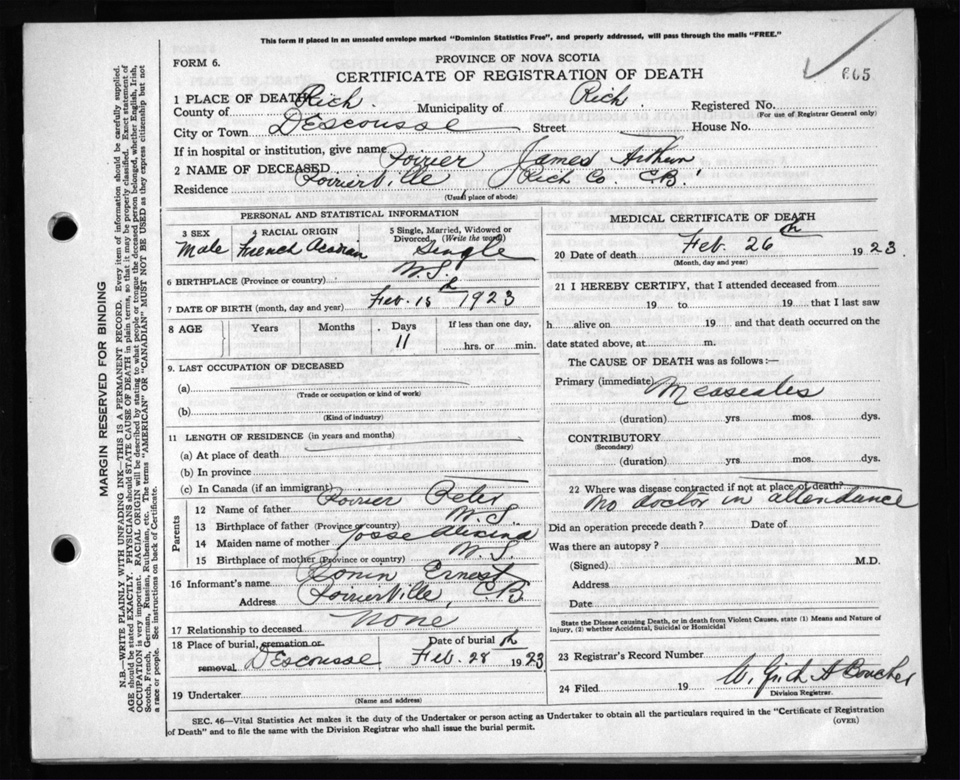 This form if placed in an unsealed envelope marked "Dominion Statistics Free", and properly addressed, will pass through the mails "FREE."
FORM 6.
PROVINCE OF NOVA SCOTIA
CERTIFICATE OF REGISTRATION OF DEATH
1 PLACE OF DEATH
County of Rich. Municipality of Rich. Registered No.
(For use of Registrar General only)
City or Town DEscousse Street House No.
If in hospital or institution, give name
2 NAME OF DECEASED Poirier James Arthur
Residence PoirierVille Rich Co. C.B.
(Usual place of abode)
PERSONAL AND STATISTICAL INFORMATION
3 SEX 4 RACIAL ORIGIN 5 Single, Married, Widowed or Divorced (Write the word)
Male French Acadian Single
6 BIRTHPLACE (Province or country) N.S.
7 DATE OF BIRTH (month, day and year) Feb. 15 th 1923
8 AGE Years Months Days If less than one day,
11 hrs. or min.
9. LAST OCCUPATION OF DECEASED
(a)
(Trade or occupation or kind of work)
(b)
(Kind of industry)
11 LENGTH OF RESIDENCE (in years and months)
(a) At place of death
(b) In province
(c) In Canada (if an immigrant)
Parents
12 Name of father Poirier Peter
13 Birthplace of father (Province or country) N.S.
14 Maiden name of mother Josse
15 Birthplace of mother (Province or country) N.S.
16 Informant's name Ernest
Address PoirierVille, C.B.
17 Relationship to deceased None
18 Place of burial, cremation or removal DEscousse Date of burial Feb. 28 th 1923
19 Undertaker
(Name and address)
MEDICAL CERTIFICATE OF DEATH
20 Date of death Feb. 26 th 1923.
(Month, day and year)
21 I HEREBY CERTIFY, that I attended deceased from
19 to 19 that I last saw
h alive on 19 and that death occurred on the
date stated above, at m.
The CAUSE OF DEATH was as follows:—
Primary (immediate) Meassales
(duration) yrs. mos. dys.
CONTRIBUTORY
(Secondary)
(duration) yrs. mos. dys.
22 Where was disease contracted if not at place of death?
No doctor in attendance
Did an operation precede death? Date of
Was there an autopsy?
(Signed) M.D.
Address
Date
State the Disease causing Death, or in death from Violent Causes, state (1) Means and Nature of
Injury, (2) whether Accidental, Suicidal or Homicidal
23 Registrar's Record Number
24 Filed 19 A Boucher
Division Registrar.
SEC. 46—Vital Statistics Act makes it the duty of the Undertaker or person acting as Undertaker to obtain all the particulars required in the "Certificate of Registration
of Death" and to file the same with the Division Registrar who shall issue the burial permit.
(OVER)
MARGIN RESERVED FOR BINDING
N.B.—WRITE PLAINLY WITH UNFADING INK—THIS IS A PERMANENT RECORD. Every item of information should be carefully supplied.
AGE should be stated EXACTLY. PHYSICIANS should STATE CAUSE OF DEATH in plain terms, so that it may be properly classified. Exact statement of
OCCUPATION is very important. RACIAL ORIGIN will be described by stating to what people or tongue the deceased person belonged, whether English, Irish,
Scotch, French, German, Russian, Ruthenian, etc. The terms "AMERICAN" OR "CANADIAN" MUST NOT BE USED as they express citizenship but not
a race or people. See instructions on back of Certificate.